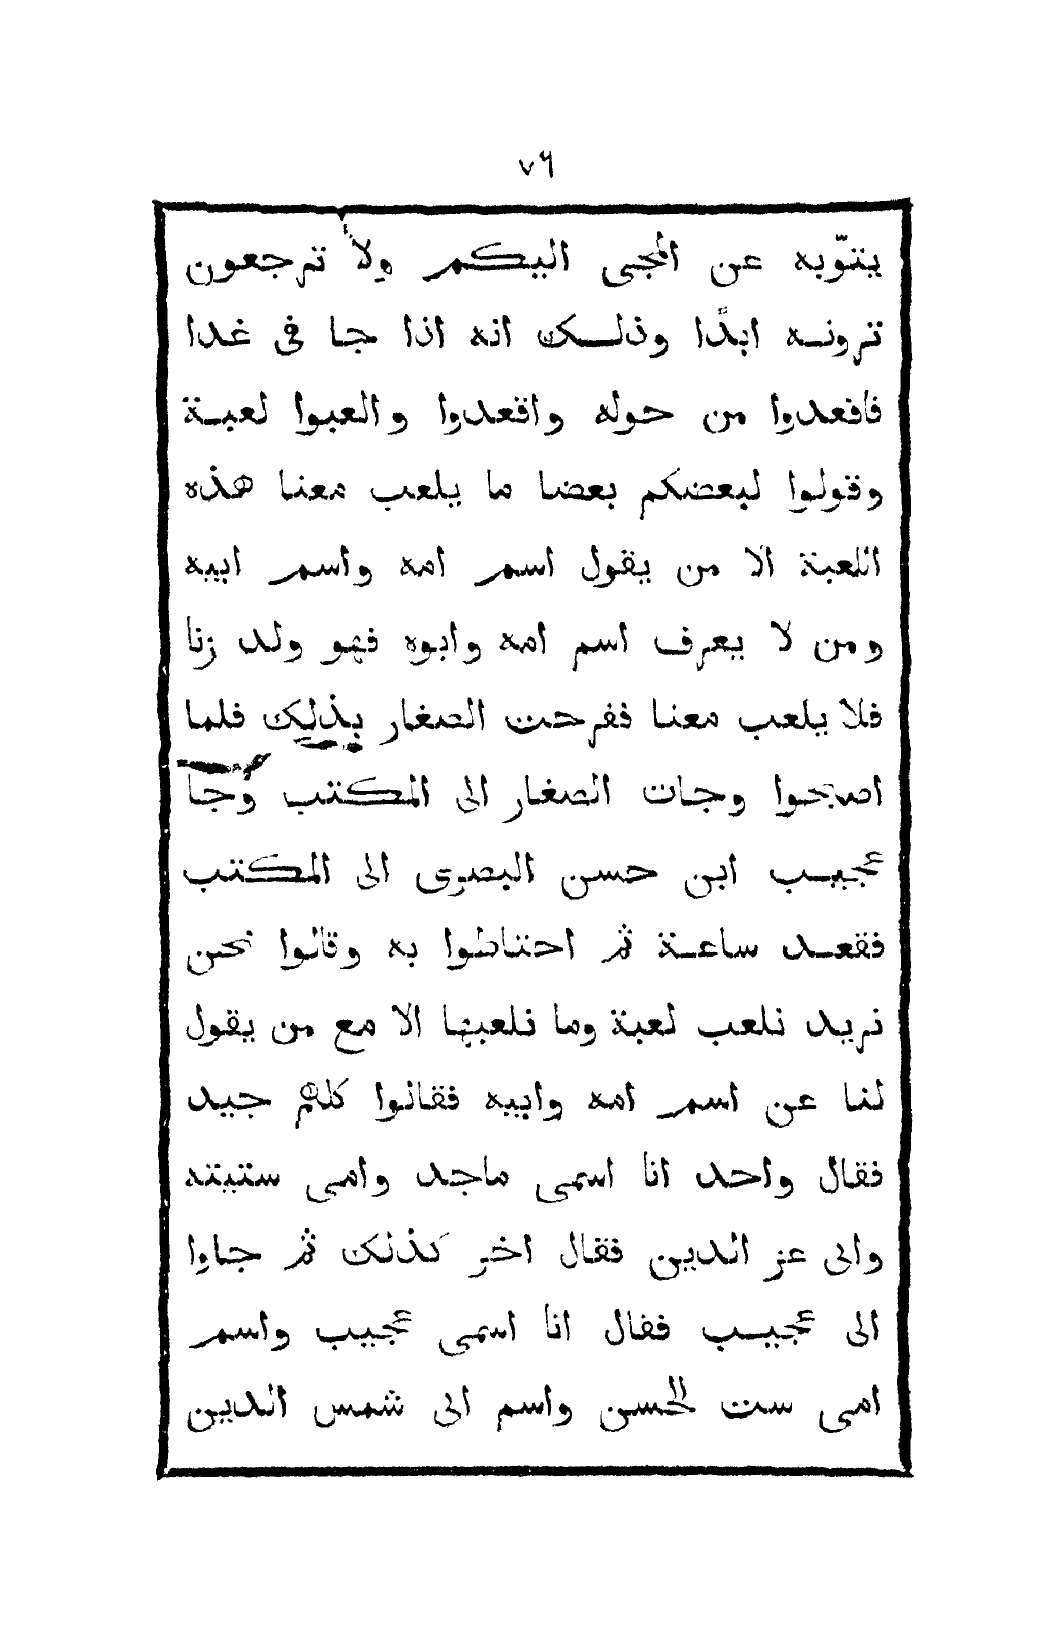 ٧٦
يتوّبه عن المجى اليكم ولا ترجعون
ترونه ابدًا وذلك انه اذا جا فى غدا
فاقعدوا من حوله واقعدوا والعبوا لعبة
وقولوا لبعضكم بعضا ما يلعب معنا هذه
اللعبة الا من يقول اسم امه واسم ابيه
ومن لا يعرف اسم امه وابوه فهو ولد زنا
فلا يلعب معنا ففرحت الصغار بذلك فلما
اصبحوا وجات الصغار الى المكتب وجا
عجيب ابن حسن البصرى الى المكتب
فقعد ساعة ثم احتاطوا به وقالوا نحن
نريد نلعب لعبة وما نلعبها الا مع من يقول
لنا عن اسم امه وابيه فقالوا كلهم جيد
فقال واحد انا اسمى ماجد وامى ستيته
وابى عز الدين فقال اخر كذلك ثم جاءوا
الى عجيب فقال انا اسمى عجيب واسم
امى ست الحسن واسم ابى شمس الدين